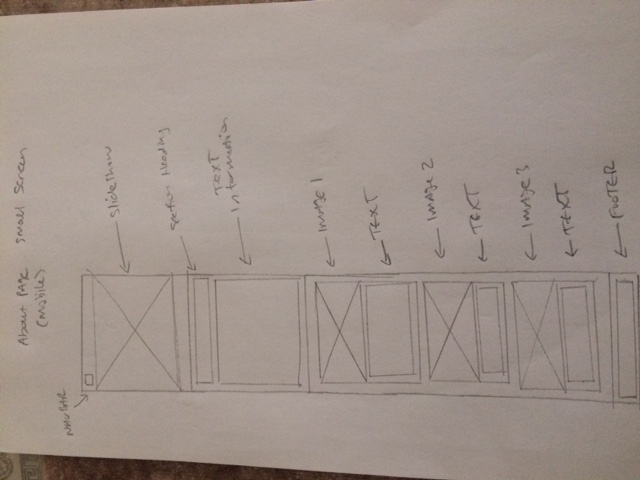 About PAGE Small Screen
(Mobile)
NAVBAR
SlideShow
Section Heading
TEXT
Information
IMAGE 1
TEXT
IMAGE 2
TEXT
IMAGE 3
TEXT
FOOTER